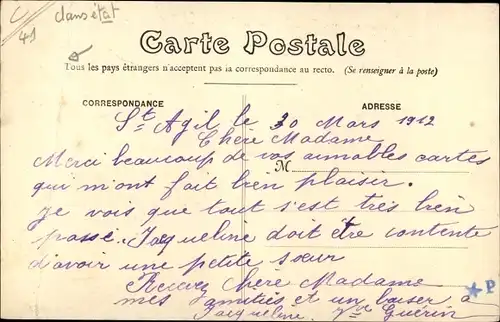 dans état
41
Carte Postale
Tous les pays étrangers n'acceptent pas la correspondance au recto. (Se renseigner à la poste)
CORRESPONDANCE
ADRESSE
St Agil le 30 Mars 1912
Chère Madame
Merci beaucoup de vos aimables cartes
M
qui m'ont fait bien plaisir.
je vois que tout s'est très bien
passé. Jacqueline doit être contente
d'avoir une petite sœur
Recevez Chère Madame
mes amitiés et un baiser à
Jacqueline. Yve Guérin
P